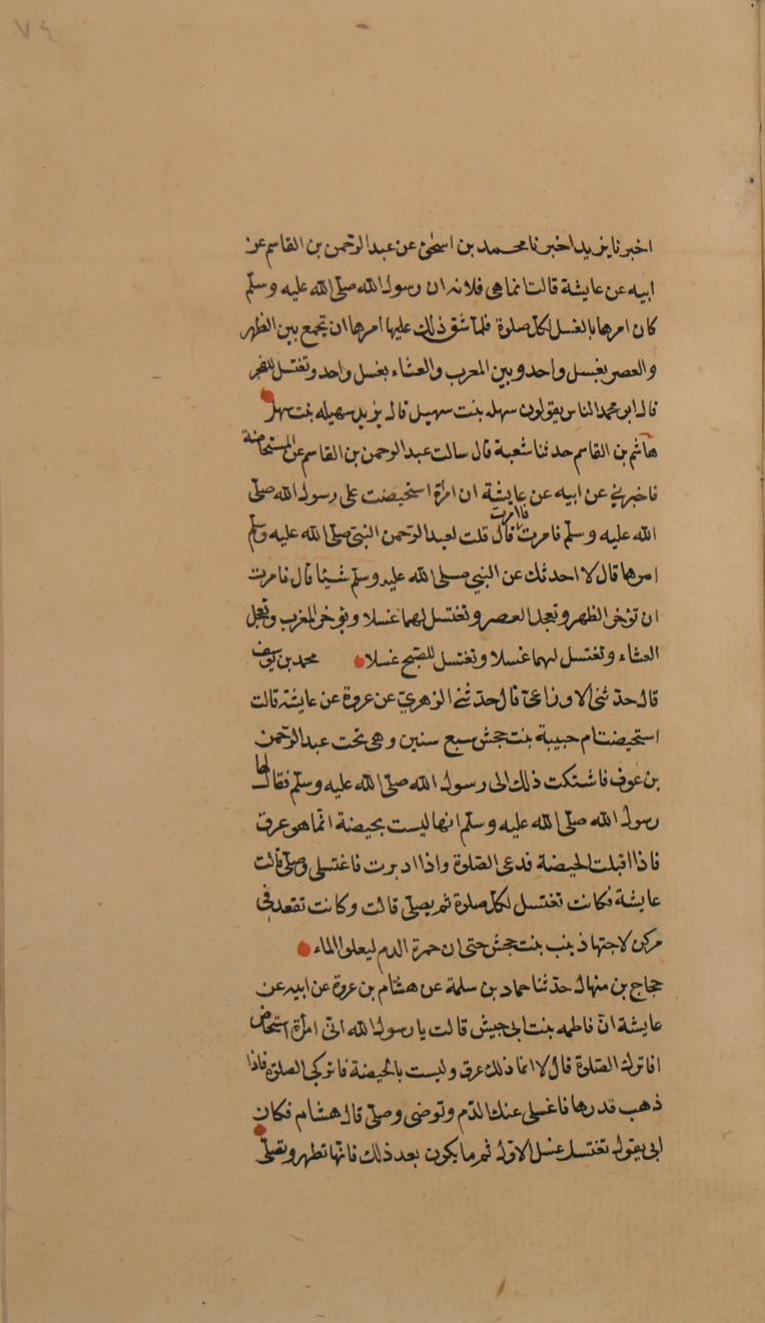 ٧٤
اخبرنا يزيد اخبرنا محمد بن اسحٰق عن عبد الرحمن بن القاسم عن
ابيه عن عايشة قالت انما هى فلانه ان رسول الله صلى الله عليه وسلم
كان امرها بالغسل لكل صلوة فلما شق ذلك عليها امرها ان تجمع بين الظهر
والعصر بغسل واحد وبين المغرب والعشاء بغسل واحد وتغتسل للفجر
قال ابو محمد الناس يقولون سهله بنت سهيل قال يزيد سهيله بنت سهل
هاشم بن القاسم حدثنا شعبة قال سالت عبد الرحمن بن القاسم عن المستحاضة
فاخبرني عن ابيه عن عايشة ان امرأة استحيضت على رسول الله صلى
الله عليه وسلم فامرت قال فامرت قلت لعبد الرحمن النبى صلى الله عليه وسلم
امرها قال لا احدثك عن النبي صلى الله عليه وسلم شيئا قال فامرت
ان تؤخر الظهر وتعجل العصر وتغتسل لهما غسلا وتؤخر المغرب وتعجل
العشاء وتغتسل لهما غسلا وتغتسل للصبح غسلا محمد بن يوسف
قال حدثنى الاوزاعى قال حدثنى الزهري عن عروة عن عايشة قالت
استحيضت ام حبيبة بنت جحش سبع سنين وهى تحت عبد الرحمن
بن عوف فاشتكت ذلك الى رسول الله صلى الله عليه وسلم فقال لها
رسول الله صلى الله عليه وسلم انها ليست بحيضة انما هو عرق
فاذا اقبلت الحيضة فدعى الصلوة واذا ادبرت فاغتسلى وصلى قالت
عايشة فكانت تغتسل لكل صلوة ثم يصلى قالت وكانت تقعد فى
مركن لاختها زينب بنت جحش حتى ان حمرة الدم ليعلو الماء
حجاج بن منهال حدثنا حماد بن سلمة عن هشام بن عروة عن ابيه عن
عايشة ان فاطمه بنت ابى حبيش قالت يا رسول الله انى امرأة استحاض
افاترك الصلوة قال لا انما ذلك عرق وليست بالحيضة فاتركى الصلوة فاذا
ذهب قدرها فاغسلى عنك الدم وتوضى وصلى قال هشام فكان
ابى يقول تغتسل غسل الاول ثم ما يكون بعد ذلك فانها تطهر وتصلى